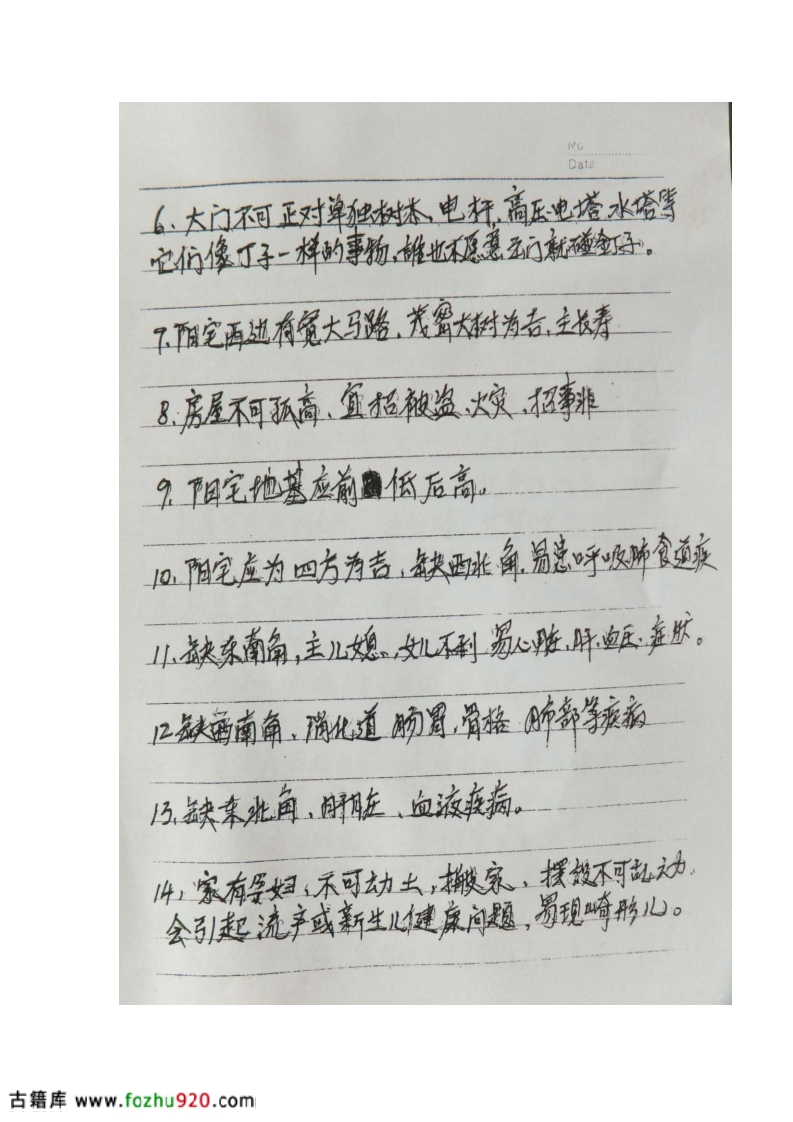 No
Date
6、大门不可正对单独树木、电杆、高压电塔、水塔等
它们像丁子一样的事物,谁也不愿意云门就碰金丁子。
7、阳宅西边有宽大马路,茂密大树为吉,主长寿
8、房屋不可孤高、宜招被盗、火灾、招事非
9、阳宅地基应前低后高。
10、阳宅应为四方为吉,缺西北角,易患呼吸肺食道疾
11、缺东南角,主儿媳、女儿不利 易心脏、肝、血压、症状。
12缺西南角、消化道 肠胃、骨格 肺部等疾病
13、缺东北角、肝脏、血液疾病。
14、家有孕妇、不可动土,搬家、摆设不可乱动,
会引起流产或新生儿健康问题,易现崎形儿。
古籍库 www.fozhu920.com